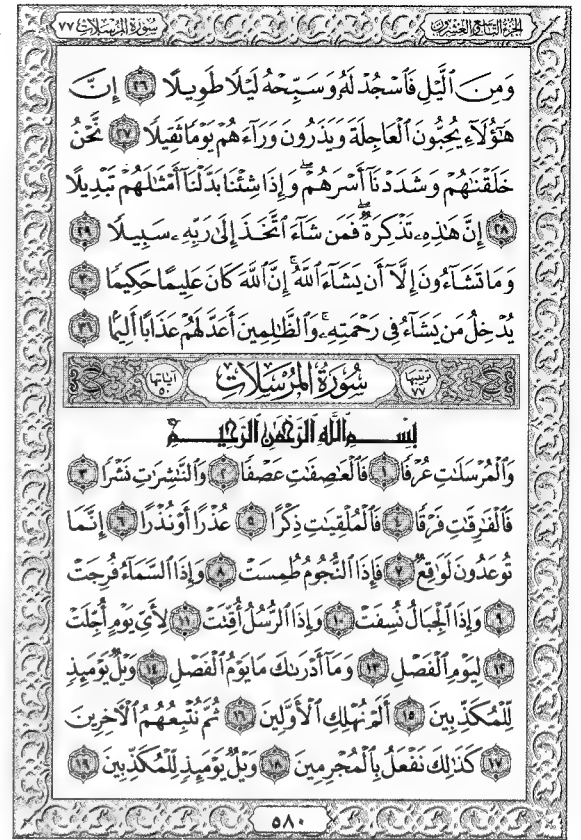 سورة المرسلات ٧٧
الجزء التاسع والعشرون
وَمِنَ ٱلَّيْلِ فَٱسْجُدْ لَهُۥ وَسَبِّحْهُ لَيْلًا طَوِيلًا ٢٦ إِنَّ
هَٰٓؤُلَآءِ يُحِبُّونَ ٱلْعَاجِلَةَ وَيَذَرُونَ وَرَآءَهُمْ يَوْمًا ثَقِيلًا ٢٧ نَّحْنُ
خَلَقْنَٰهُمْ وَشَدَدْنَآ أَسْرَهُمْ ۖ وَإِذَا شِئْنَا بَدَّلْنَآ أَمْثَٰلَهُمْ تَبْدِيلًا
٢٨ إِنَّ هَٰذِهِۦ تَذْكِرَةٌ ۖ فَمَن شَآءَ ٱتَّخَذَ إِلَىٰ رَبِّهِۦ سَبِيلًا ٢٩
وَمَا تَشَآءُونَ إِلَّآ أَن يَشَآءَ ٱللَّهُ ۚ إِنَّ ٱللَّهَ كَانَ عَلِيمًا حَكِيمًا ٣٠
يُدْخِلُ مَن يَشَآءُ فِى رَحْمَتِهِۦ ۚ وَٱلظَّٰلِمِينَ أَعَدَّ لَهُمْ عَذَابًا أَلِيمًا ٣١
ترتيبها ٧٧ سُورَةُ المُرْسَلَاتِ آياتها ٥٠
بِسْمِ ٱللَّهِ ٱلرَّحْمَٰنِ ٱلرَّحِيمِ
وَٱلْمُرْسَلَٰتِ عُرْفًا ١ فَٱلْعَٰصِفَٰتِ عَصْفًا ٢ وَٱلنَّٰشِرَٰتِ نَشْرًا ٣
فَٱلْفَٰرِقَٰتِ فَرْقًا ٤ فَٱلْمُلْقِيَٰتِ ذِكْرًا ٥ عُذْرًا أَوْ نُذْرًا ٦ إِنَّمَا
تُوعَدُونَ لَوَٰقِعٌ ٧ فَإِذَا ٱلنُّجُومُ طُمِسَتْ ٨ وَإِذَا ٱلسَّمَآءُ فُرِجَتْ
٩ وَإِذَا ٱلْجِبَالُ نُسِفَتْ ١٠ وَإِذَا ٱلرُّسُلُ أُقِّتَتْ ١١ لِأَىِّ يَوْمٍ أُجِّلَتْ
١٢ لِيَوْمِ ٱلْفَصْلِ ١٣ وَمَآ أَدْرَىٰكَ مَا يَوْمُ ٱلْفَصْلِ ١٤ وَيْلٌ يَوْمَئِذٍ
لِّلْمُكَذِّبِينَ ١٥ أَلَمْ نُهْلِكِ ٱلْأَوَّلِينَ ١٦ ثُمَّ نُتْبِعُهُمُ ٱلْءَاخِرِينَ
١٧ كَذَٰلِكَ نَفْعَلُ بِٱلْمُجْرِمِينَ ١٨ وَيْلٌ يَوْمَئِذٍ لِّلْمُكَذِّبِينَ ١٩
٥٨٠